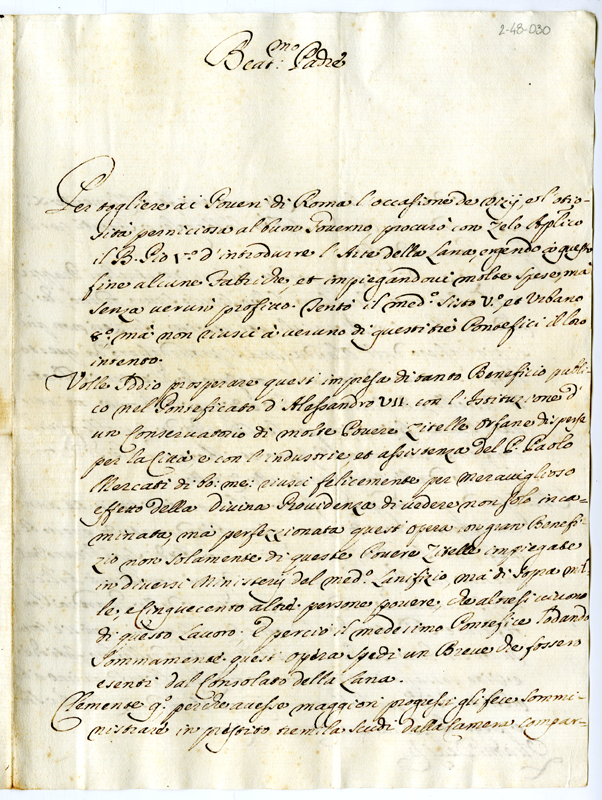 2-48-D30
Beat.mo Padre
Per togliere à i Poveri di Roma l'occasione de Vizij, e l'otio-
sità perniciosa al buon Governo procurò con Zelo Aplico
il B. Pio V.o d'introdurre l'Arte della Lana, ergendo à questo
fine alcune Fabriche, et impiegandovi molte spese, mà
senza verun profitto. Tentò il med.o Sisto V.o, et Urbano
8.o, mà non riuscì à veruno di questi trè Pontefici il loro
intento.
Volle Iddio prosperare quest'impresa di tanto Beneficio publi-
co nel Ponteficato d'Alessandro VII. con l'Istituzione d'
un Conservatorio di molte Povere Zitelle Orfane disperse
per la Città e con l'industrie, et assistenza del P. Paolo
Mercati di bo: me: riuscì felicemente per meraviglioso
effetto della Divina Providenza di vedere non solo inca=
minata, mà perfezzionata quest'opera con gran Benefi-
zio non solamente di queste Povere Zitelle impiegate
in diversi Ministerij del med.o Lanifizio, mà di sopra mil-
le, e Cinquecento altre persone povere, che altresì vivono
di questo Lavoro. E perciò il medesimo Pontefice lodando
sommamente quest'opera spedì un Breve che fossero
esenti dal Consolato della Lana.
Clemente 9. perche avesse maggiori progressi gli fece sommi-
nistrare in prestito tremila scudi dalla Camera, compar-